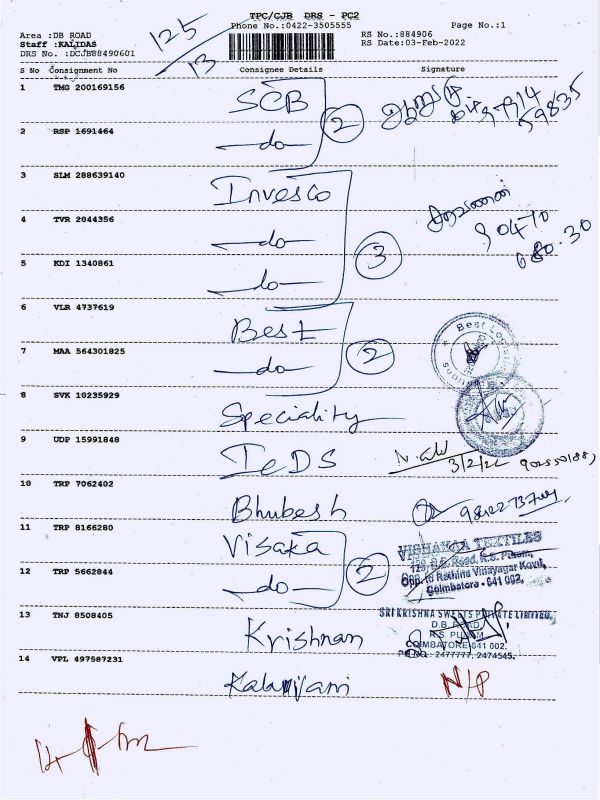 TPC/CJB DRS - PC2
Phone No.:0422-3505555
Page No.:1
Area :DB ROAD
RS No.:884906
Staff :KALIDAS
RS Date:03-Feb-2022
DRS No. :DCJB88490601
125
13
S No Consignment No Consignee Details Signature
1 TMG 200169156 SCB
2
59835
2 RSP 1691464 do
3 SLM 288639140 Invesco
4 TVR 2044356 do
3
90470
680.30
5 KDI 1340861 do
6 VLR 4737619 Best
2
7 MAA 564301825 do
8 SVK 10235929 Speciality
9 UDP 15991848 IeDS
3/2/22
10 TRP 7062402 Bhubesh
11 TRP 8166280 Visaka
2
VISHAKAA TEXTILES
R.S. Puram,
Opp. to Rathina Vinayagar Kovil,
Coimbatore - 641 002.
12 TRP 5662844 do
13 TNJ 8508405 Krishnan
SRI KRISHNA SWEETS PRIVATE LIMITED,
D.B. ROAD,
R.S. PURAM,
COIMBATORE 641 002.
PH NO.: 2477777, 2474545.
14 VPL 497587231 Kalaniyani
N/P